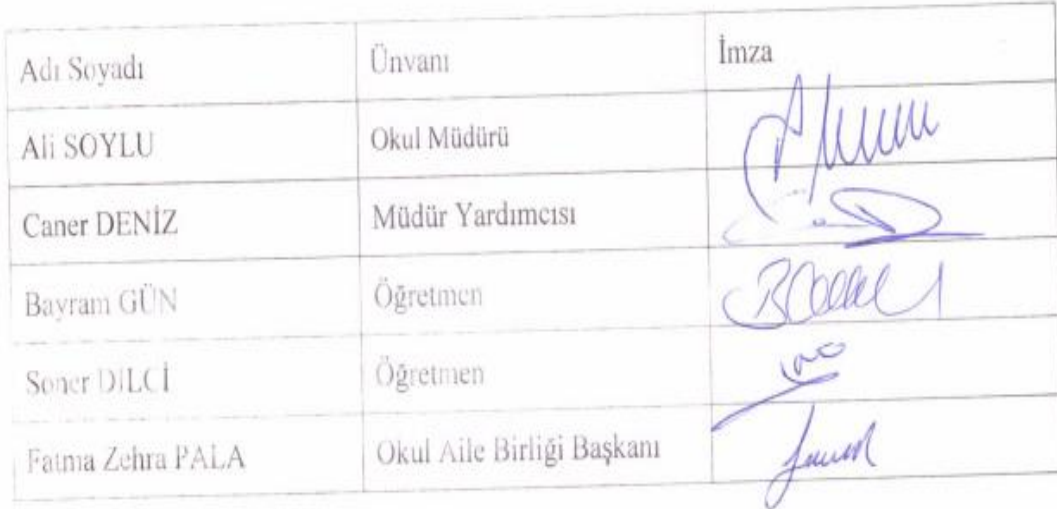 Adı Soyadı Ünvanı İmza
Ali SOYLU Okul Müdürü
Caner DENİZ Müdür Yardımcısı
Bayram GÜN Öğretmen
Soner DİLCİ Öğretmen
Fatma Zehra PALA Okul Aile Birliği Başkanı